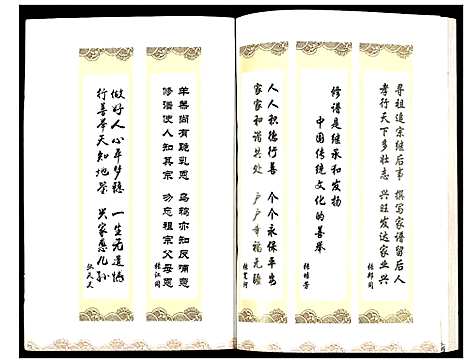 寻祖追宗继后事 撰写家谱留后人
孝行天下多壮志 兴旺发达家业兴
张邦同
修谱是继承和发扬
中国传统文化的善举
张培芳
人人积德行善 个个永保平安
家家和谐共处 户户幸福无疆
张宽河
羊羔尚有跪乳恩 乌鸦亦知反哺恩
修谱使人知其宗 勿忘祖宗父母恩
张江同
做好人心平梦稳 一生无遗憾
行善举天知地荣 兴家惠儿孙